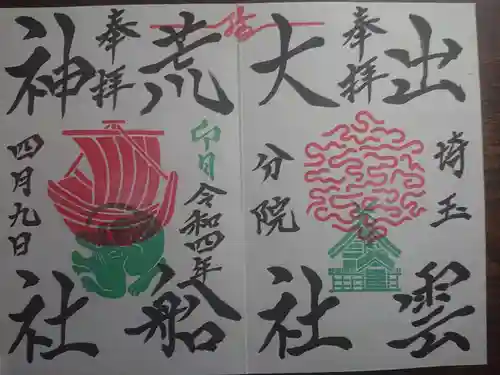 出雲
埼玉
奉拝
大社
分院
荒船
卯月
令和四年
奉拝
神社
四月九日